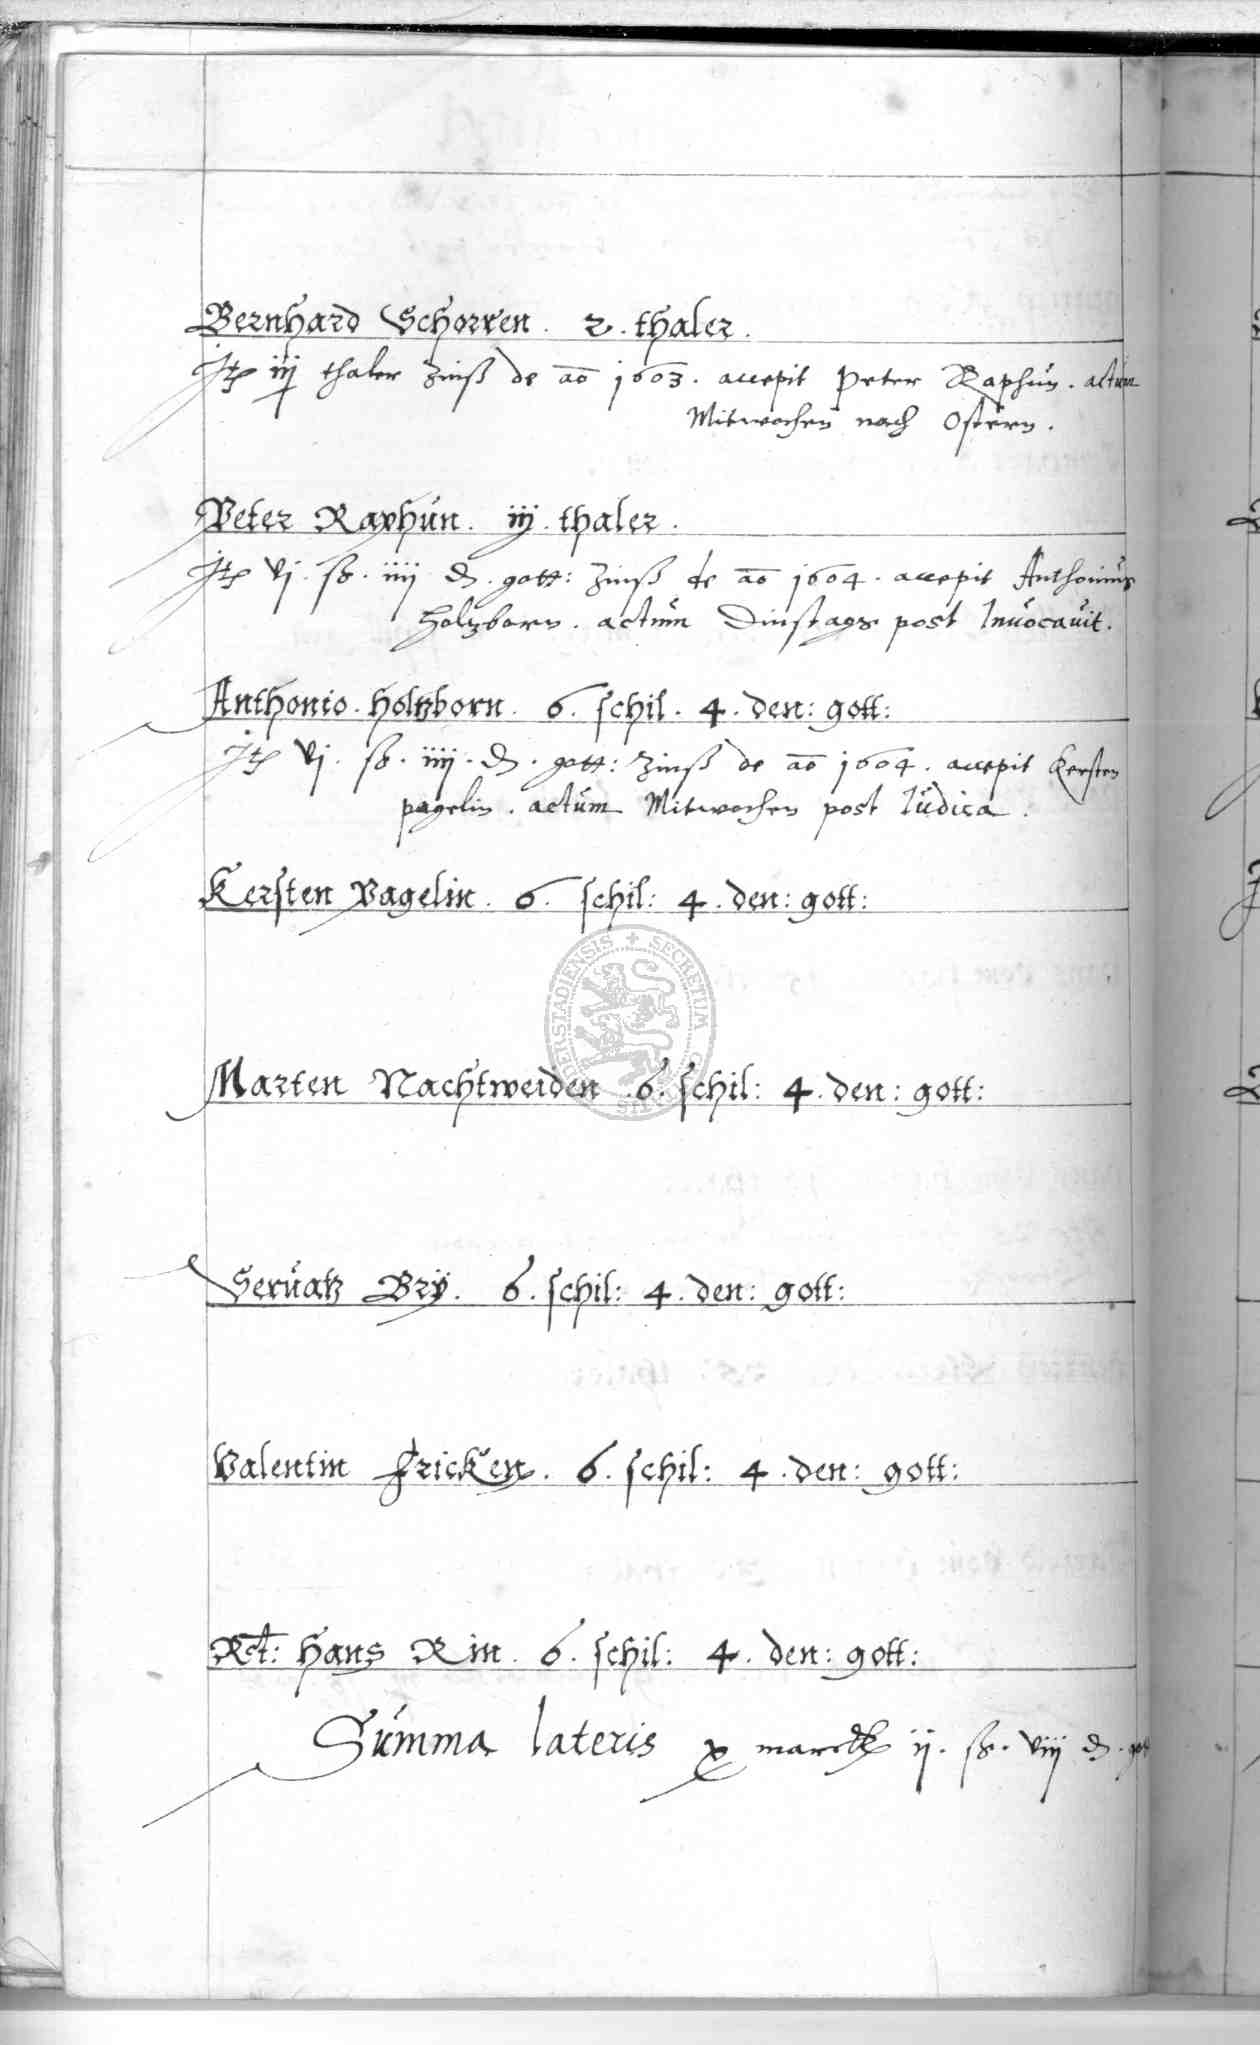 Bernhard Schorren. 2. thaler.
Itē iij thaler Zinß de ao 1603. accepit Peter Raphun. actum
Mitwochen nach Ostern.
Peter Raphun. iij. thaler.
Itē vj. ß. iiij. d. gott: Zinß de ao 1604. accepit Anthonius
Holtzborn. actum Dinstags post Invocavit.
Anthonio. Holtzborn. 6. schil. 4. den: gott:
Itē vj. ß. iiij. d. gott: Zinß de ao 1604. accepit Kersten
pagelin. actum Mitwochen post Iudica.
Kersten Pagelin. 6. schil: 4. den: gott:
Marten Nachtweiden. 6. schil: 4. den: gott:
Servatz Brÿ. 6. schil: 4. den: gott:
Valentin Fricken. 6. schil: 4. den: gott:
Rct: Hans Rin. 6. schil: 4. den: gott:
Summa lateris x marck ij. ß. viij d.
SECRETUM